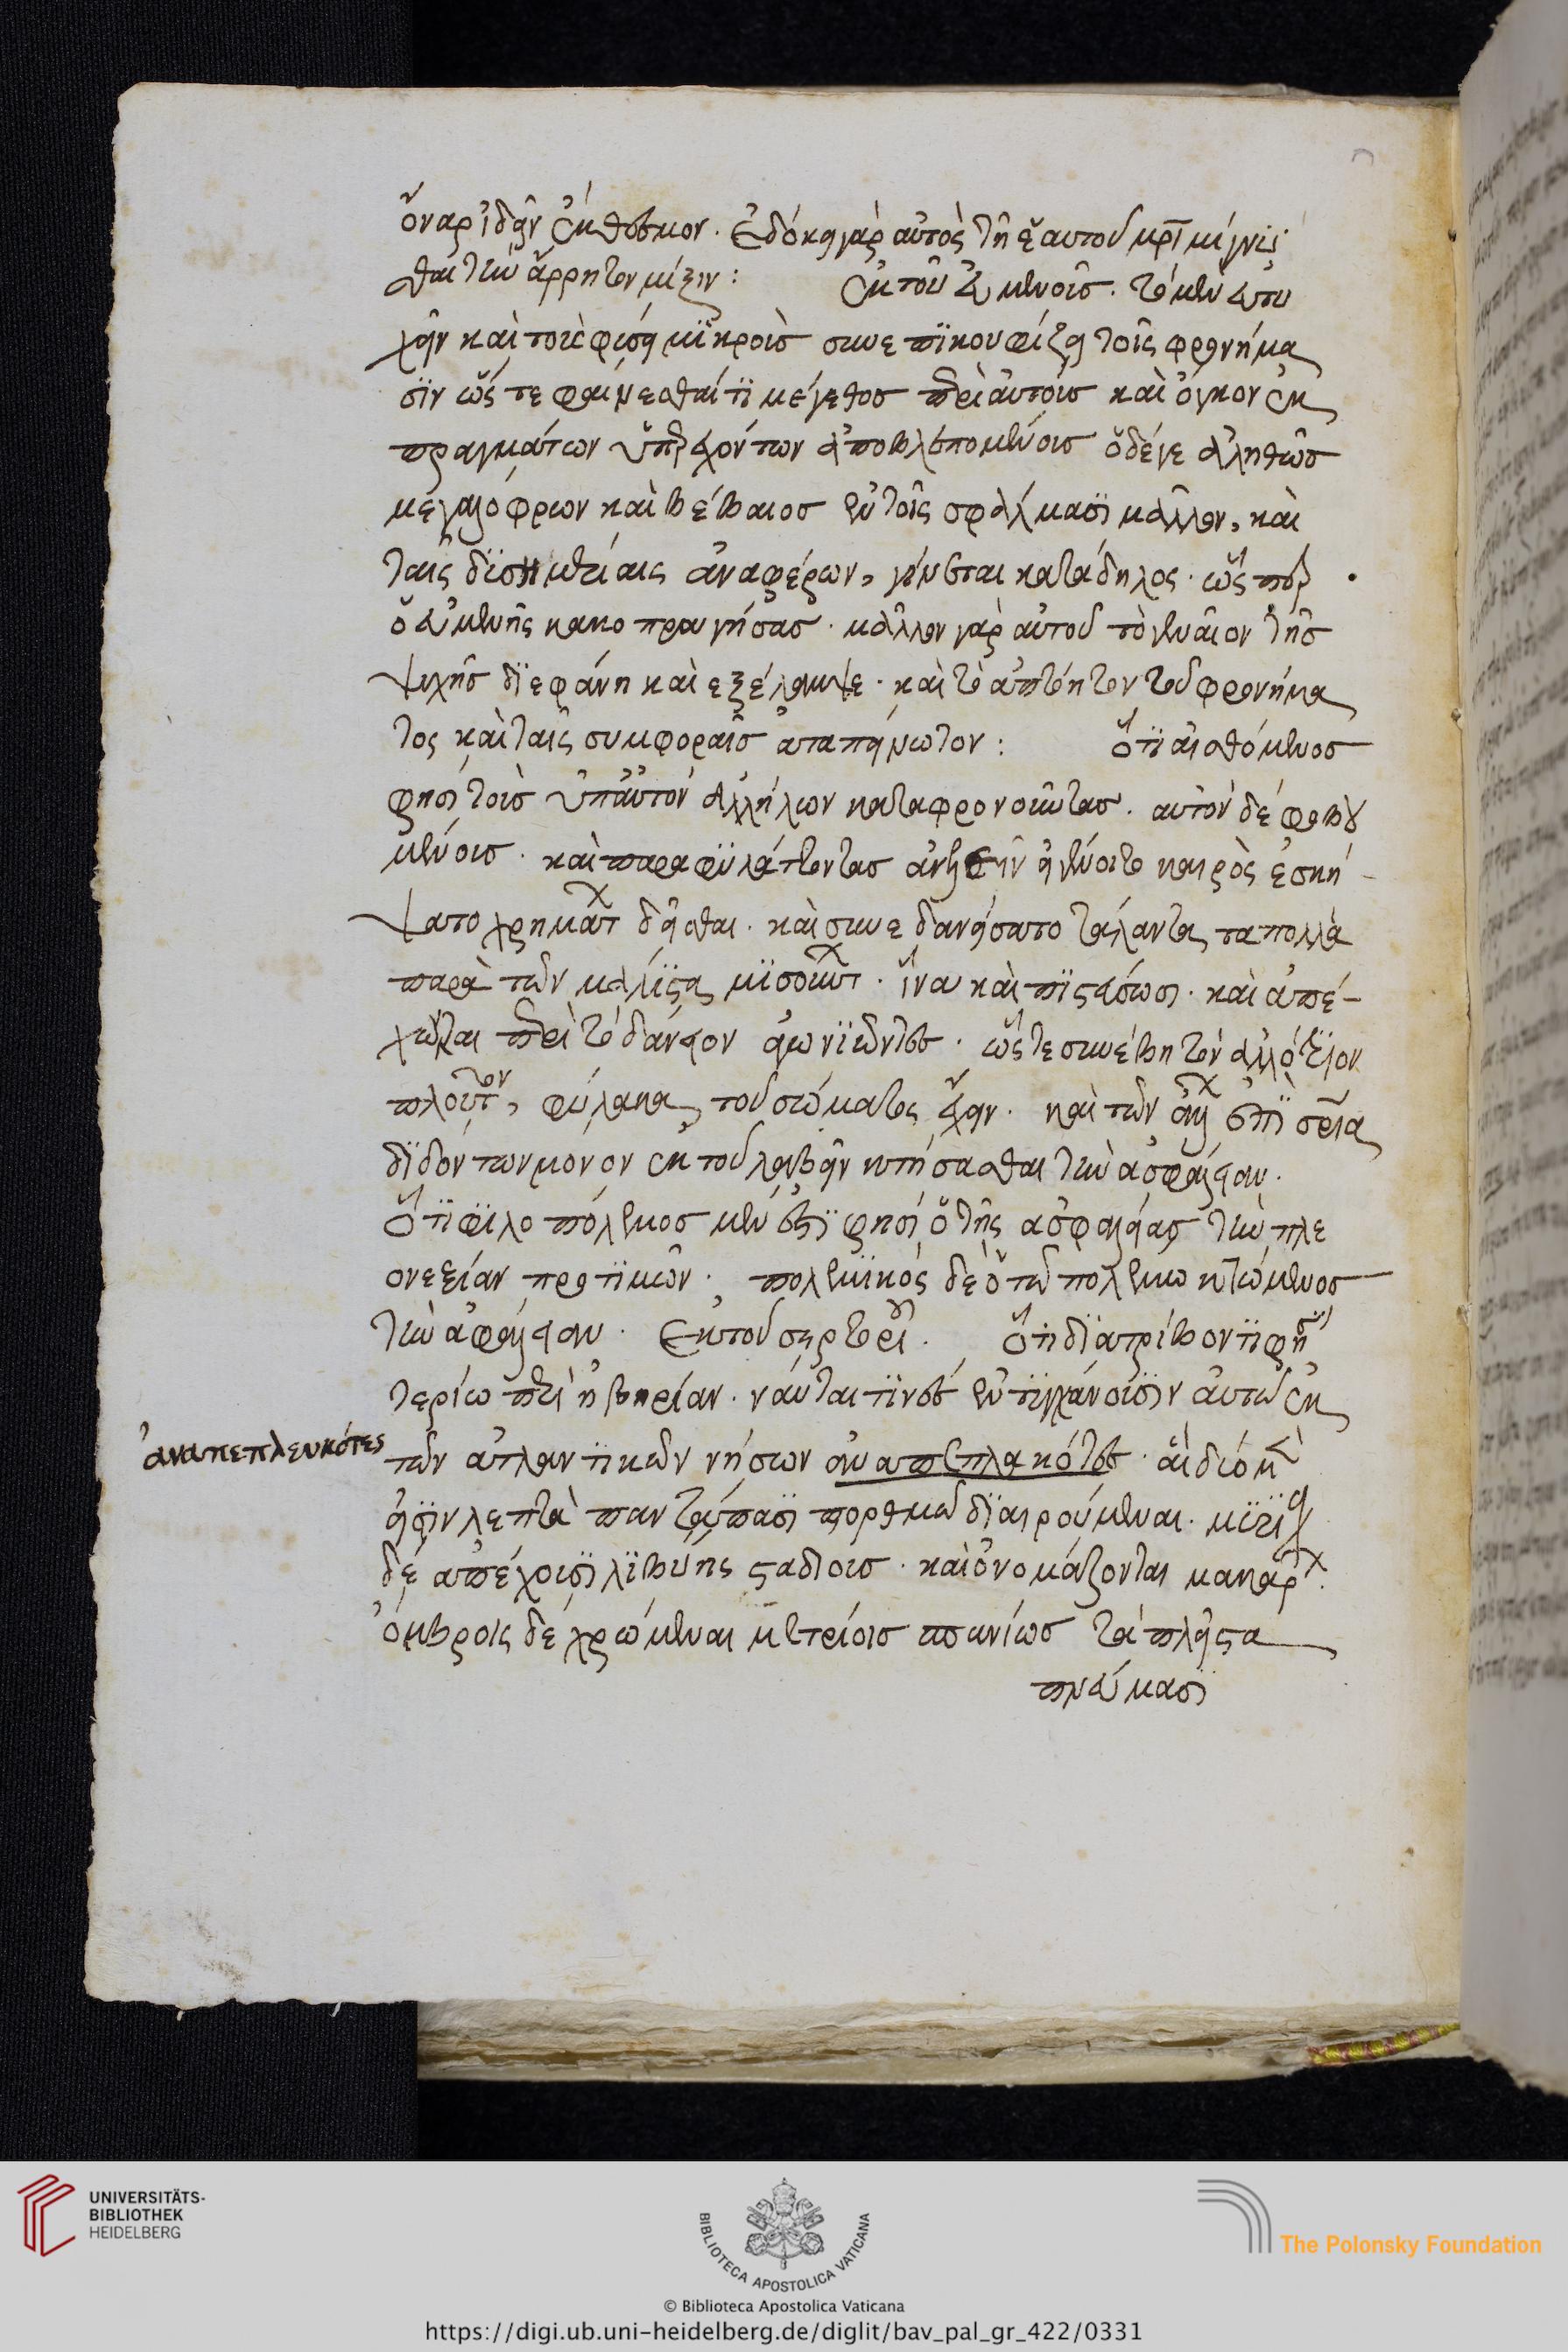 ὄναρ ἰδεῖν ἔκθεσμον. ἐδόκει γὰρ αὐτὸς τῇ ἑαυτοῦ μρὶ μίγνυ
σθαι τὴν ἄρρητον μίξιν: Ἐκ τοῦ Εὐμένους. τὸ μὲν εὐτυ
χεῖν καὶ τοὺς φύσει μικροὺς συνεπικουφίζει τοῖς φρονήμα
σιν ὥστε φαίνεσθαί τι μέγεθος περὶ αὐτοὺς καὶ ὄγκον ἐκ
πραγμάτων ὑπερεχόντων ἀποβλεπομένους ὁ δέ γε ἀληθῶς
μεγαλόφρων καὶ βέβαιος ἐν τοῖς σφάλμασι μᾶλλον, καὶ
ταῖς δυσημερίαις ἀναφέρων, γίνεται κατάδηλος. ὥσπερ
ὁ Εὐμένης κακοπραγήσας. μᾶλλον γὰρ αὐτοῦ τὸ γενναῖον τῆς
ψυχῆς διεφάνη καὶ εξέλαμψε. καὶ τὸ ἀπτόητον τοῦ φρονήμα
τος καὶ ταῖς συμφοραῖς ἀταπείνωτον: Ὅτι αἰσθόμενος
φησὶ τοὺς ὑπ' αὐτὸν ἀλλήλων καταφρονοῦντας. αὐτὸν δὲ φοβου
μένους. καὶ παραφυλάττοντας ἀνελεῖν εἰ γένοιτο καιρὸς ἐσκή
ψατο χρημάτων δεῖσθαι. καὶ συνεδανείσατο τάλαντα τὰ πολλὰ
παρὰ τῶν μάλιστα μισούντων. ἵνα καὶ πιστεύσωσι. καὶ ἀπέ-
χωνται περὶ τὸ δάνειον ἀγωνιῶντες. ὥστε συνέβη τὸν ἀλλότριον
πλοῦτον, φύλακα τοῦ σώματος ἔχειν. καὶ τῶν ἄλλων ἐπὶ σρίᾳ
διδόντων μόνον ἐκ τοῦ λαβεῖν κτήσασθαι τὴν ἀσφάλειαν.
Ὅτι φιλοπόλεμος μέν ἐστι φησὶ ὁ τῆς ἀσφαλείας τὴν πλε
ονεξίαν προτιμῶν. πολεμικὸς δὲ ὁ τῷ πολέμῳ κτώμενος
τὴν ἀσφάλειαν. Ἐκ τοῦ σερτορί. Ὅτι διατρίβοντι φησὶ
τερίω περὶ ἰβηρίαν. ναῦταί τινες ἐντυγχάνουσιν αὐτῷ ἐκ
ἀναπεπλευκότες
τῶν ἀτλαντικῶν νήσων ἀναπεπλακότες. αἳ δύο μὲν
εἰσὶν λεπτῷ παντάπασι πορθμῷ διαιρούμεναι. μυρίους
δὲ ἀπέχουσι λιβύης σταδίους. καὶ ὀνομάζονται μακάρων.
ὄμβροις δὲ χρώμεναι μετρίοις σπανίως τὰ πλεῖστα
πνεύμασι
UNIVERSITÄTS-
BIBLIOTHEK
HEIDELBERG
BIBLIOTECA APOSTOLICA VATICANA
The Polonsky Foundation
© Biblioteca Apostolica Vaticana
https://digi.ub.uni-heidelberg.de/diglit/bav_pal_gr_422/0331